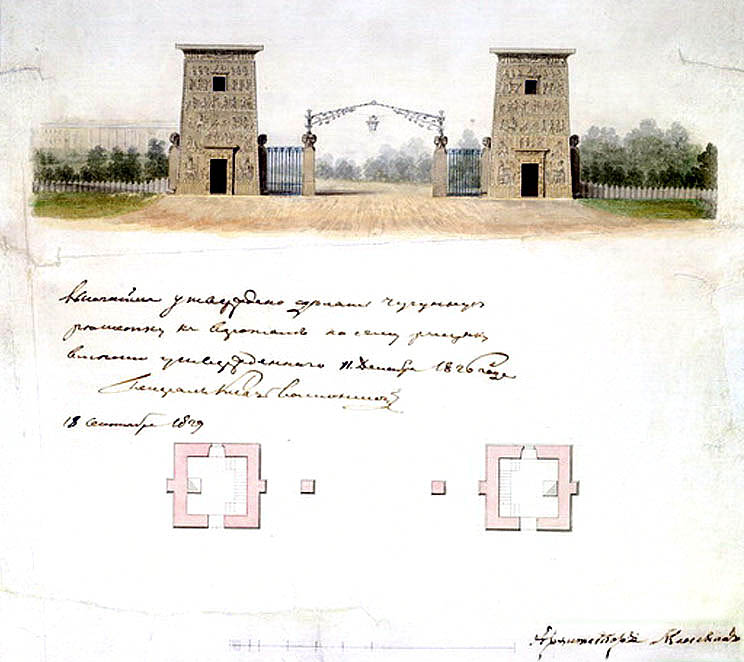 Высочайше утверждено сделать чугунную
решотку къ воротамъ по сему рисунку
вместо утвержденного 11. Декабря 1826 года
Генералъ Князь Волконской
18 Сентября 1829
Архитекторъ Менеласъ